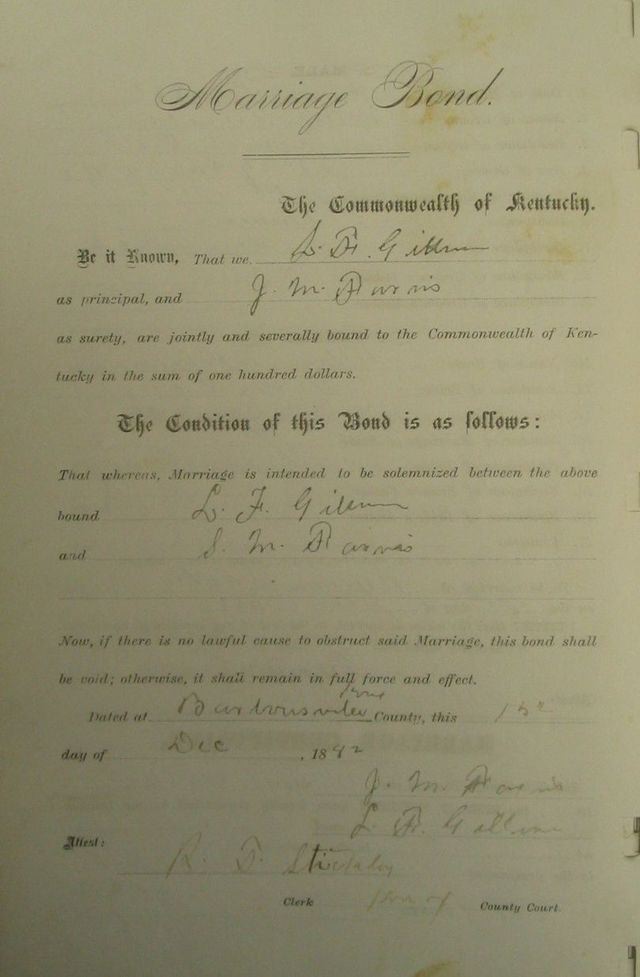 Marriage Bond.
The Commonwealth of Kentucky.
Be it Known, That we L. F. Gillum
as principal, and J. M. Parris
as surety, are jointly and severally bound to the Commonwealth of Ken-
tucky in the sum of one hundred dollars.
The Condition of this Bond is as follows:
That whereas, Marriage is intended to be solemnized between the above
bound L. F. Gillum
and S. M. Parris
Now, if there is no lawful cause to obstruct said Marriage, this bond shall
be void; otherwise, it shall remain in full force and effect.
Dated at Barbourville Knox County, this 1st
day of Dec , 1882
J. M. Parris
L. F. Gillum
Attest:
R. T.
Clerk County Court.